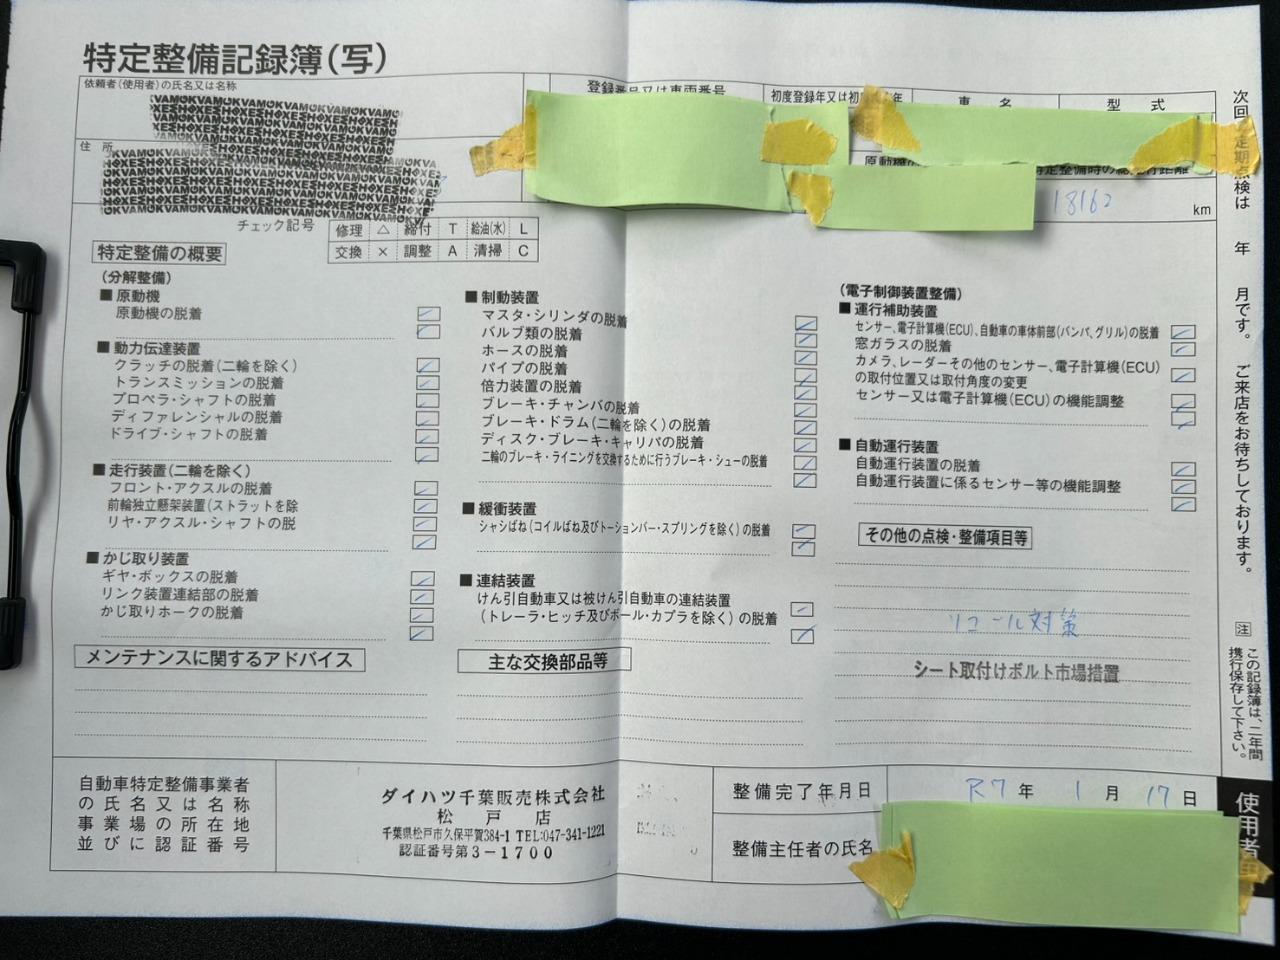 特定整備記録簿(写)
依頼者(使用者)の氏名又は名称
登録番号又は車両番号
初度登録年又は初
年
車 名
型 式
住 所
原動機の
特定整備時の総走行距離
18162
km
チェック記号
修理 △ 締付 T 給油(水) L
交換 × 調整 A 清掃 C
特定整備の概要
(分解整備)
■ 原動機
原動機の脱着
■ 動力伝達装置
クラッチの脱着(二輪を除く)
トランスミッションの脱着
プロペラ・シャフトの脱着
ディファレンシャルの脱着
ドライブ・シャフトの脱着
■ 走行装置(二輪を除く)
フロント・アクスルの脱着
前輪独立懸架装置(ストラットを除
リヤ・アクスル・シャフトの脱
■ かじ取り装置
ギヤ・ボックスの脱着
リンク装置連結部の脱着
かじ取りホークの脱着
■ 制動装置
マスタ・シリンダの脱着
バルブ類の脱着
ホースの脱着
パイプの脱着
倍力装置の脱着
ブレーキ・チャンバの脱着
ブレーキ・ドラム(二輪を除く)の脱着
ディスク・ブレーキ・キャリパの脱着
二輪のブレーキ・ライニングを交換するために行うブレーキ・シューの脱着
■ 緩衝装置
シャシばね(コイルばね及びトーションバー・スプリングを除く)の脱着
■ 連結装置
けん引自動車又は被けん引自動車の連結装置
(トレーラ・ヒッチ及びボール・カプラを除く)の脱着
(電子制御装置整備)
■ 運行補助装置
センサー、電子計算機(ECU)、自動車の車体前部(バンパ、グリル)の脱着
窓ガラスの脱着
カメラ、レーダーその他のセンサー、電子計算機(ECU)
の取付位置又は取付角度の変更
センサー又は電子計算機(ECU)の機能調整
■ 自動運行装置
自動運行装置の脱着
自動運行装置に係るセンサー等の機能調整
その他の点検・整備項目等
リコール対策
シート取付けボルト市場措置
メンテナンスに関するアドバイス
主な交換部品等
自動車特定整備事業者
の氏名又は名称
事業場の所在地
並びに認証番号
ダイハツ千葉販売株式会社
松 戸 店
千葉県松戸市久保平賀384-1 TEL:047-341-1221
認証番号第3-1700
整備完了年月日
R7 年 1 月 17 日
整備主任者の氏名
次回 定期点検は 年 月です。 ご来店をお待ちしております。
注 この記録簿は、二年間
携行保存して下さい。
使用者